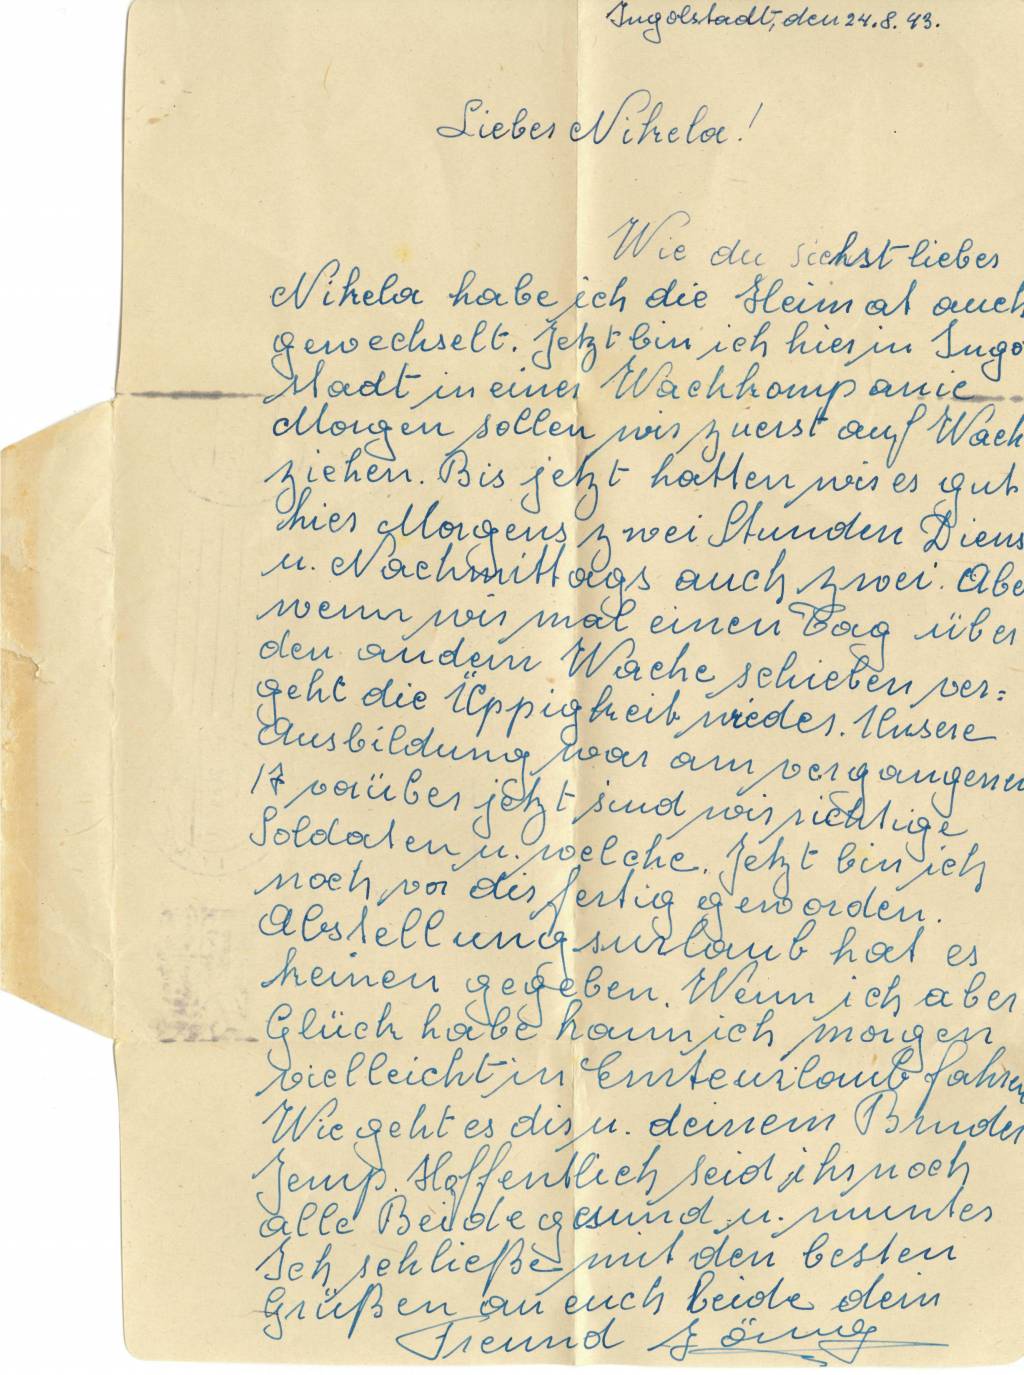 Ingolstadt, den 24.8.43.
Liebes Nikela!
Wie du siehst liebes
Nikela habe ich die Heimat auch
gewechselt. Jetzt bin ich hier in Ingo
stadt in einer Wachkompanie
Morgen sollen wir zuerst auf Wach
ziehen. Bis jetzt hatten wir es gut
hier Morgens zwei Stunden Diens
u. Nachmittags auch zwei. Abe
wenn wir mal einen Tag über
den andern Wache schieben ver=
geht die Üppigkeit wieder. Unsere
Ausbildung war am vergangenen
17 vorüber jetzt sind wir richtige
Soldaten u. welche. Jetzt bin ich
noch vor dir fertig geworden.
Abstellungsurlaub hat es
keinen gegeben. Wenn ich aber
Glück habe kann ich morgen
vielleicht in Ernteurlaub fahren
Wie geht es dir u. deinem Bruder
Jemp. Hoffentlich seid ihr noch
alle Beide gesund u. munter
Ich schließe mit den besten
Grüßen an euch beide dein
Freund